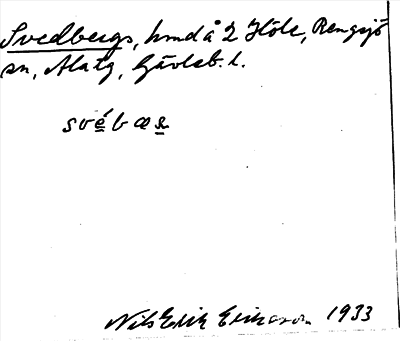 Svedbergs, hmd å 2 Höle, Rengsjö
sn, Alatg, Gävleb. l.
svébas
Nils Erik Eriksson 1933